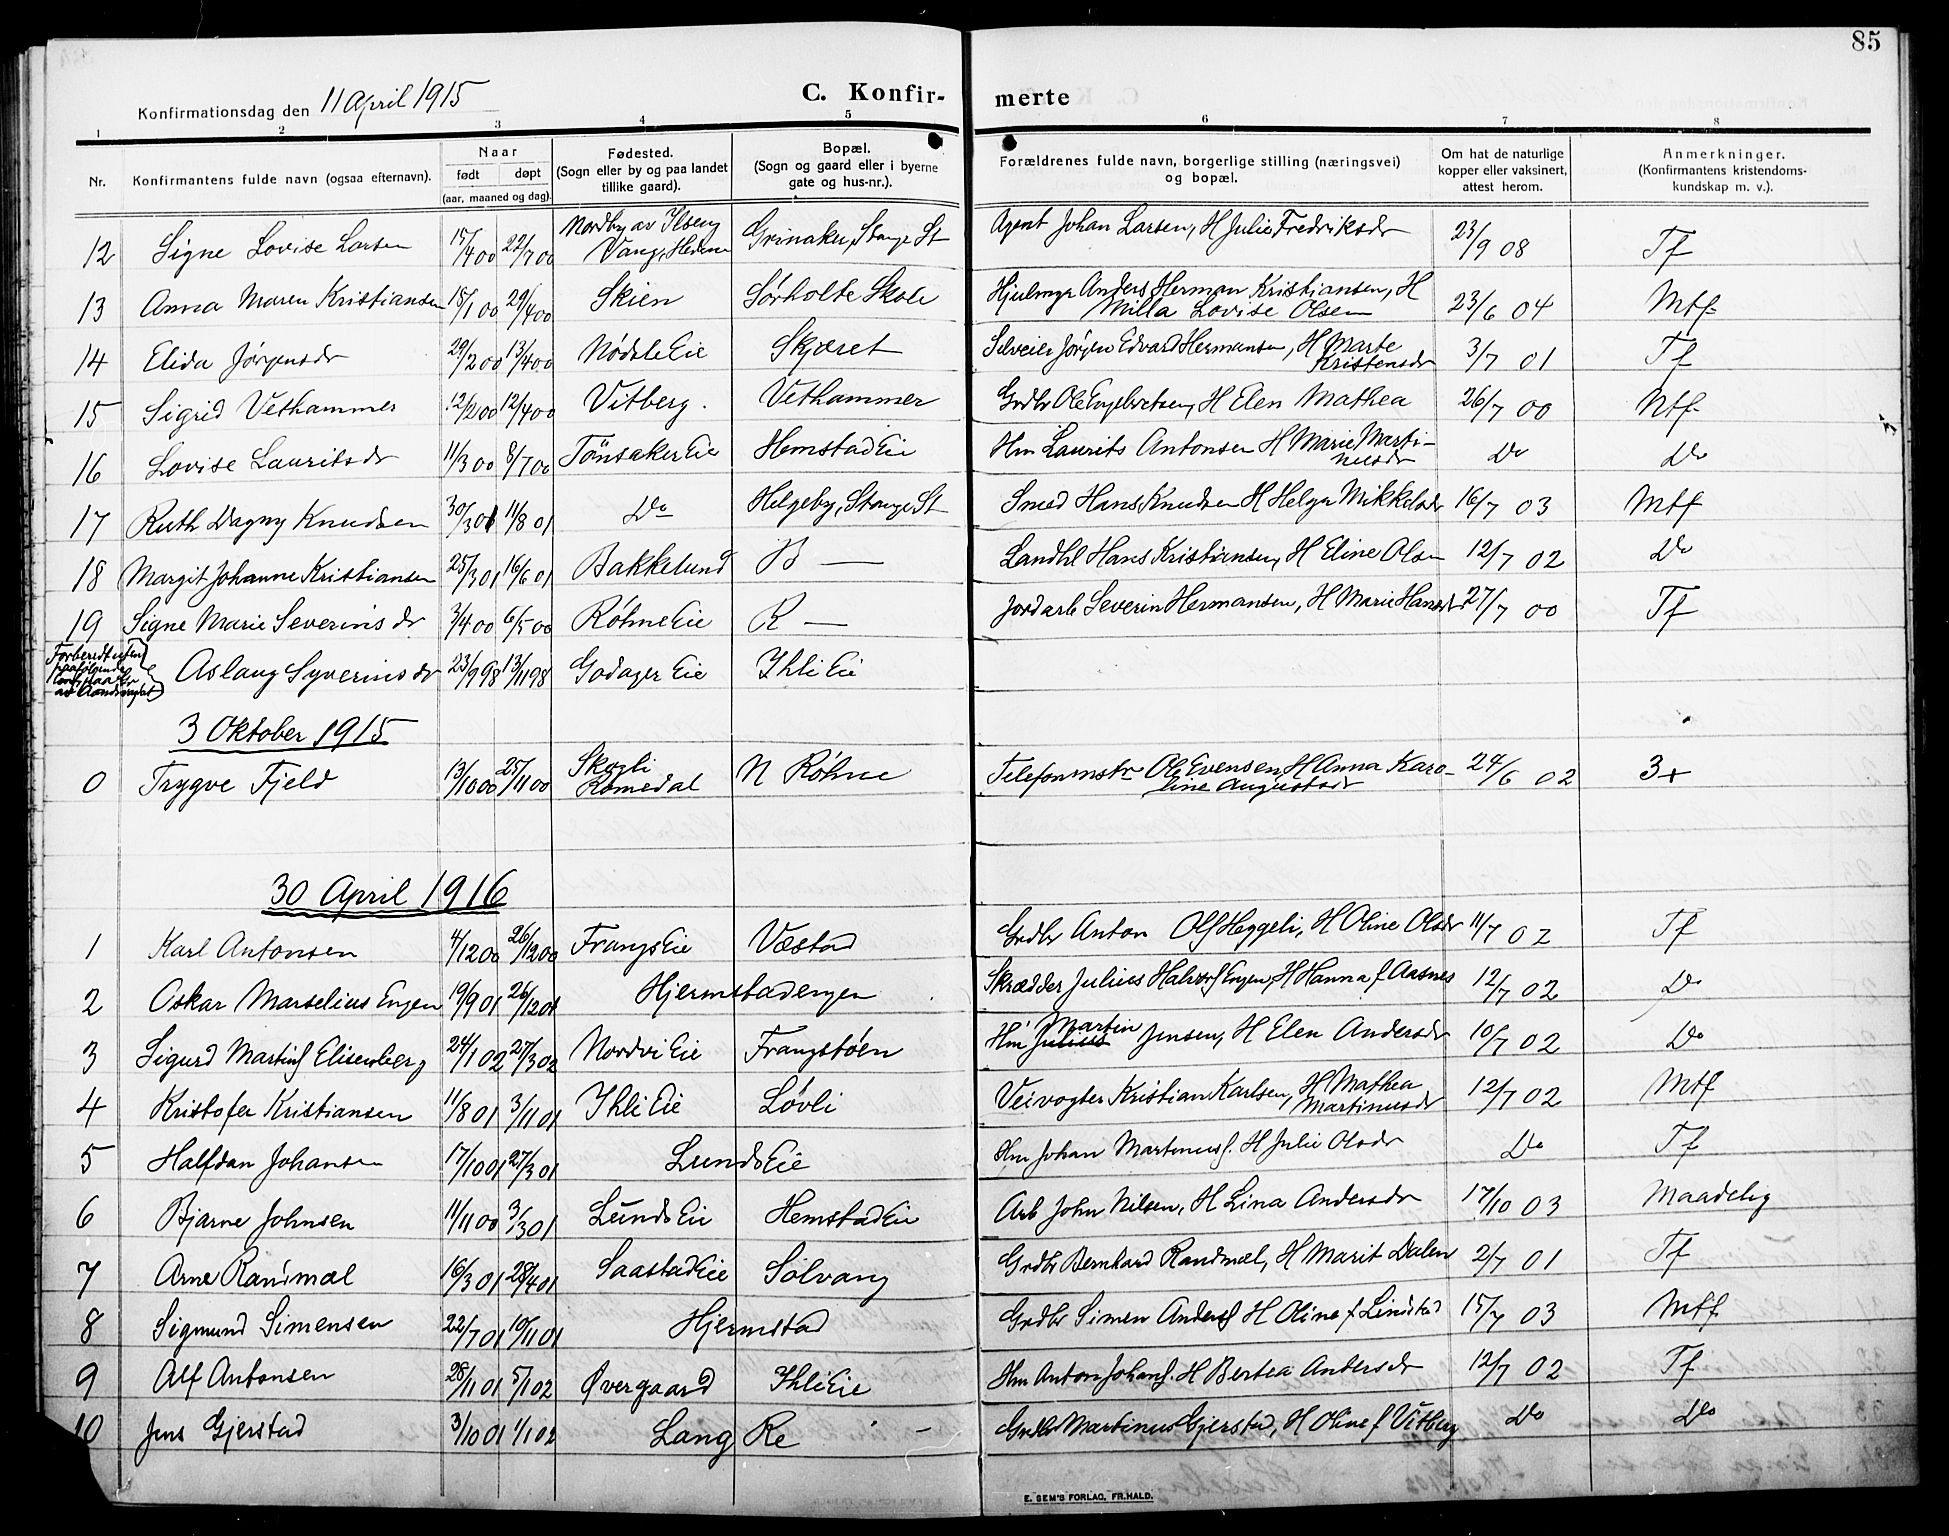 85
Konfirmationsdag den 11 April 1915
C. Konfir-merte
1 2 3 4 5 6 7 8
Nr. | Konfirmantens fulde navn (ogsaa efternavn). | Naar født døpt (aar, maaned og dag). | Fødested. (Sogn eller by og paa landet tillike gaard). | Bopæl. (Sogn og gaard eller i byerne gate og hus-nr.). | Forældrenes fulde navn, borgerlige stilling (næringsvei) og bopæl. | Om hat de naturlige kopper eller vaksinert, attest herom. | Anmerkninger. (Konfirmantens kristendoms-kundskap m. v.).
12 Signe Lovise Larsen 15/4 00 22/7 00 Nordby av Ilseng Vang, Hedem Grinaker, Stange St Agent Johan Larsen, H Julie Fredriksdr 23/9 08 Tf
13 Anna Maren Kristiansen 18/1 00 29/4 00 Skien Sørholte Skole Hjulmgr Anders Herman Kristiansen, H Milla Lovise Olsen 23/6 04 Mtf
14 Elida Jørgensdr 29/2 00 13/4 00 Nødsle Eie Skjæret Selveier Jørgen Edvard Hermansen, H Marte Kristensdr 3/7 01 Tf
15 Sigrid Vethammer 12/2 00 12/4 00 Vitberg. Vethammer Grdbr Ole Engebretsen, H Elen Mathea 26/7 00 Mtf
16 Lovise Lauritsdr 11/3 00 8/7 00 Tönsaker Eie Hemstad Eie Hm Laurits Antonsen H Marie Marti-nusdr Do Do
17 Ruth Dagny Knudsen 30/3 01 11/8 01 Do Helgeby, Stange St Smed Hans Knudsen H Helga Mikkelsdr 16/7 03 Mtf
18 Margit Johanne Kristiansen 25/3 01 16/6 01 Bakkelund B — Landhl Hans Kristiansen, H Eline Olsen 12/7 02 Do
19 Signe Marie Severinsdr 3/4 00 6/5 00 Røhne Eie R — Jordarb Severin Hermansen, H Marie Hansdr 27/7 00 Tf
Aslaug Syverinsdr 23/9 98 13/11 98 Godager Eie Ihli Eie
3 Oktober 1915
0 Trygve Fjeld 13/10 00 25/11 00 Skogli Romedal N Røhne Telefonmstr Ole Evensen, H Anna Karo-line Augustadr 24/6 02 3+
30 April 1916
1 Karl Antonsen 4/12 00 26/12 00 Frangs Eie Væstad Grdbr Anton Olf Heggeli, H Oline Olsdr 11/7 02 Tf
2 Oskar Marselius Engen 19/9 01 26/12 01 Hjermstadengen Skrædder Julius Halvorf Engen, H Hanna f Aasnes 12/7 02 Do
3 Sigurd Martinf Elisenberg 24/1 02 27/3 02 Nordvi Eie Frangstøen Hm Julius Martin Jensen, H Elen Andersdr 10/7 02 Do
4 Kristofer Kristiansen 11/8 01 3/11 01 Ihli Eie Løvli Veivogter Kristian Karlsen, H Mathea Martinusdr 12/7 02 Mtf
5 Halfdan Johansen 17/10 01 27/3 01 Lunds Eie Hm Johan Martinusf. H Julie Olsdr Do Tf
6 Bjarne Johnsen 11/11 00 3/3 01 Lunds Eie Hemstad Eie Arb John Nilsen, H Lina Andersdr 17/10 03 Maadelig
7 Arne Randmæl 16/3 01 28/4 01 Saastad Eie Solvang Grdbr Bernhard Randmæl, H Marit Dalen 2/7 01 Tf
8 Sigmund Simensen 22/7 01 10/11 01 Hjermstad Grdbr Simen Andersf H Oline f Lindstad 15/7 03 Mtf
9 Alf Antonsen 28/11 01 5/1 02 Øvergaard Ihli Eie Hm Anton Johansf. H Bertea Andersdr 12/7 02 Tf
10 Jens Gjerstad 3/10 01 1/1 02 Lang Re Grdbr Martinus Gjerstad, H Oline f Vitberg Do Do
E. SEM'S FORLAG, FR.HALD.